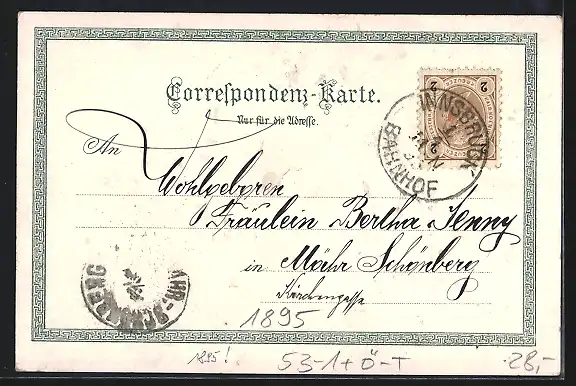 Correspondenz-Karte.
Nur für die Adresse.
An
Wohlgeboren
Fräulein Bertha Jenny
in Mähr Schönberg
Kirchengasse
INNSBRUCK
BAHNHOF
2 2
2
1895
1895!
53-1+Ö-T
28,-